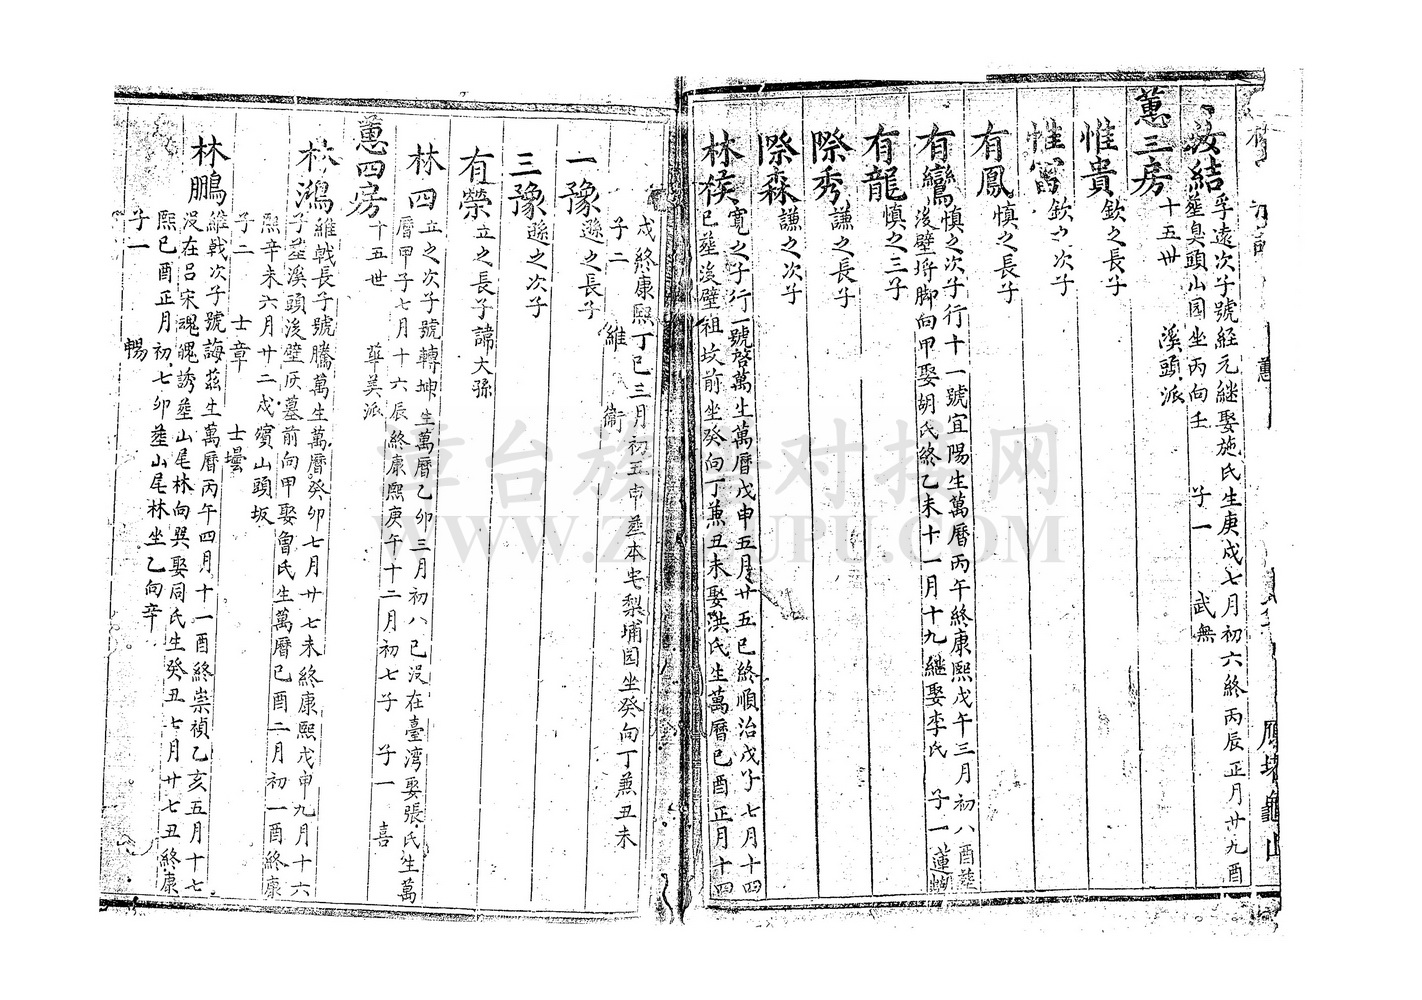 汝結
孚遠次子號經元繼娶施氏生庚戌七月初六終丙辰正月廿九酉
葬臭頭山园坐丙向壬 子一 武無
蕙三房
十五世 溪頭派
惟貴
欽之長子
惟富
欽之次子
有鳳
慎之長子
有鸞
慎之次子行十一號宜陽生萬曆丙午終康熙戊午三月初八酉葬
後壁埒脚向甲娶胡氏終乙未十一月十九繼娶李氏 子一 蓮
有龍
慎之三子
際秀
謙之長子
際森
謙之次子
林複
寬之子行一號啓萬生萬曆戊申五月廿五巳終順治戊子七月十四
巳葬後壁祖坟前坐癸向丁兼丑未娶洪氏生萬曆己酉正月十四
戌終康熙丁巳三月初五申葬本宅梨埔园坐癸向丁兼丑未
子二 維 衛
一豫
遜之長子
三豫
遜之次子
有榮
立之長子諱大孫
林四
立之次子號轉坤生萬曆乙卯三月初八巳没在臺灣娶張氏生萬
曆甲子七月十六辰終康熙庚午十二月初七子 子一 喜
蕙四房
十五世 華美派
林鴻
維戟長子號騰萬生萬曆癸卯七月廿七未終康熙戊申九月十六
子葬溪頭後壁灰墓前向甲娶魯氏生萬曆己酉二月初一酉終康
熙辛未六月廿二戌殯山頭坂
子二 士章 士壜
林鵬
維戟次子號誨茲生萬曆丙午四月十一酉終崇禎乙亥五月十七
没在吕宋魂魄誘葬山尾林向巽娶同氏生癸丑七月廿七丑終康
熙己酉正月初七卯葬山尾林坐乙向辛
子一 暢